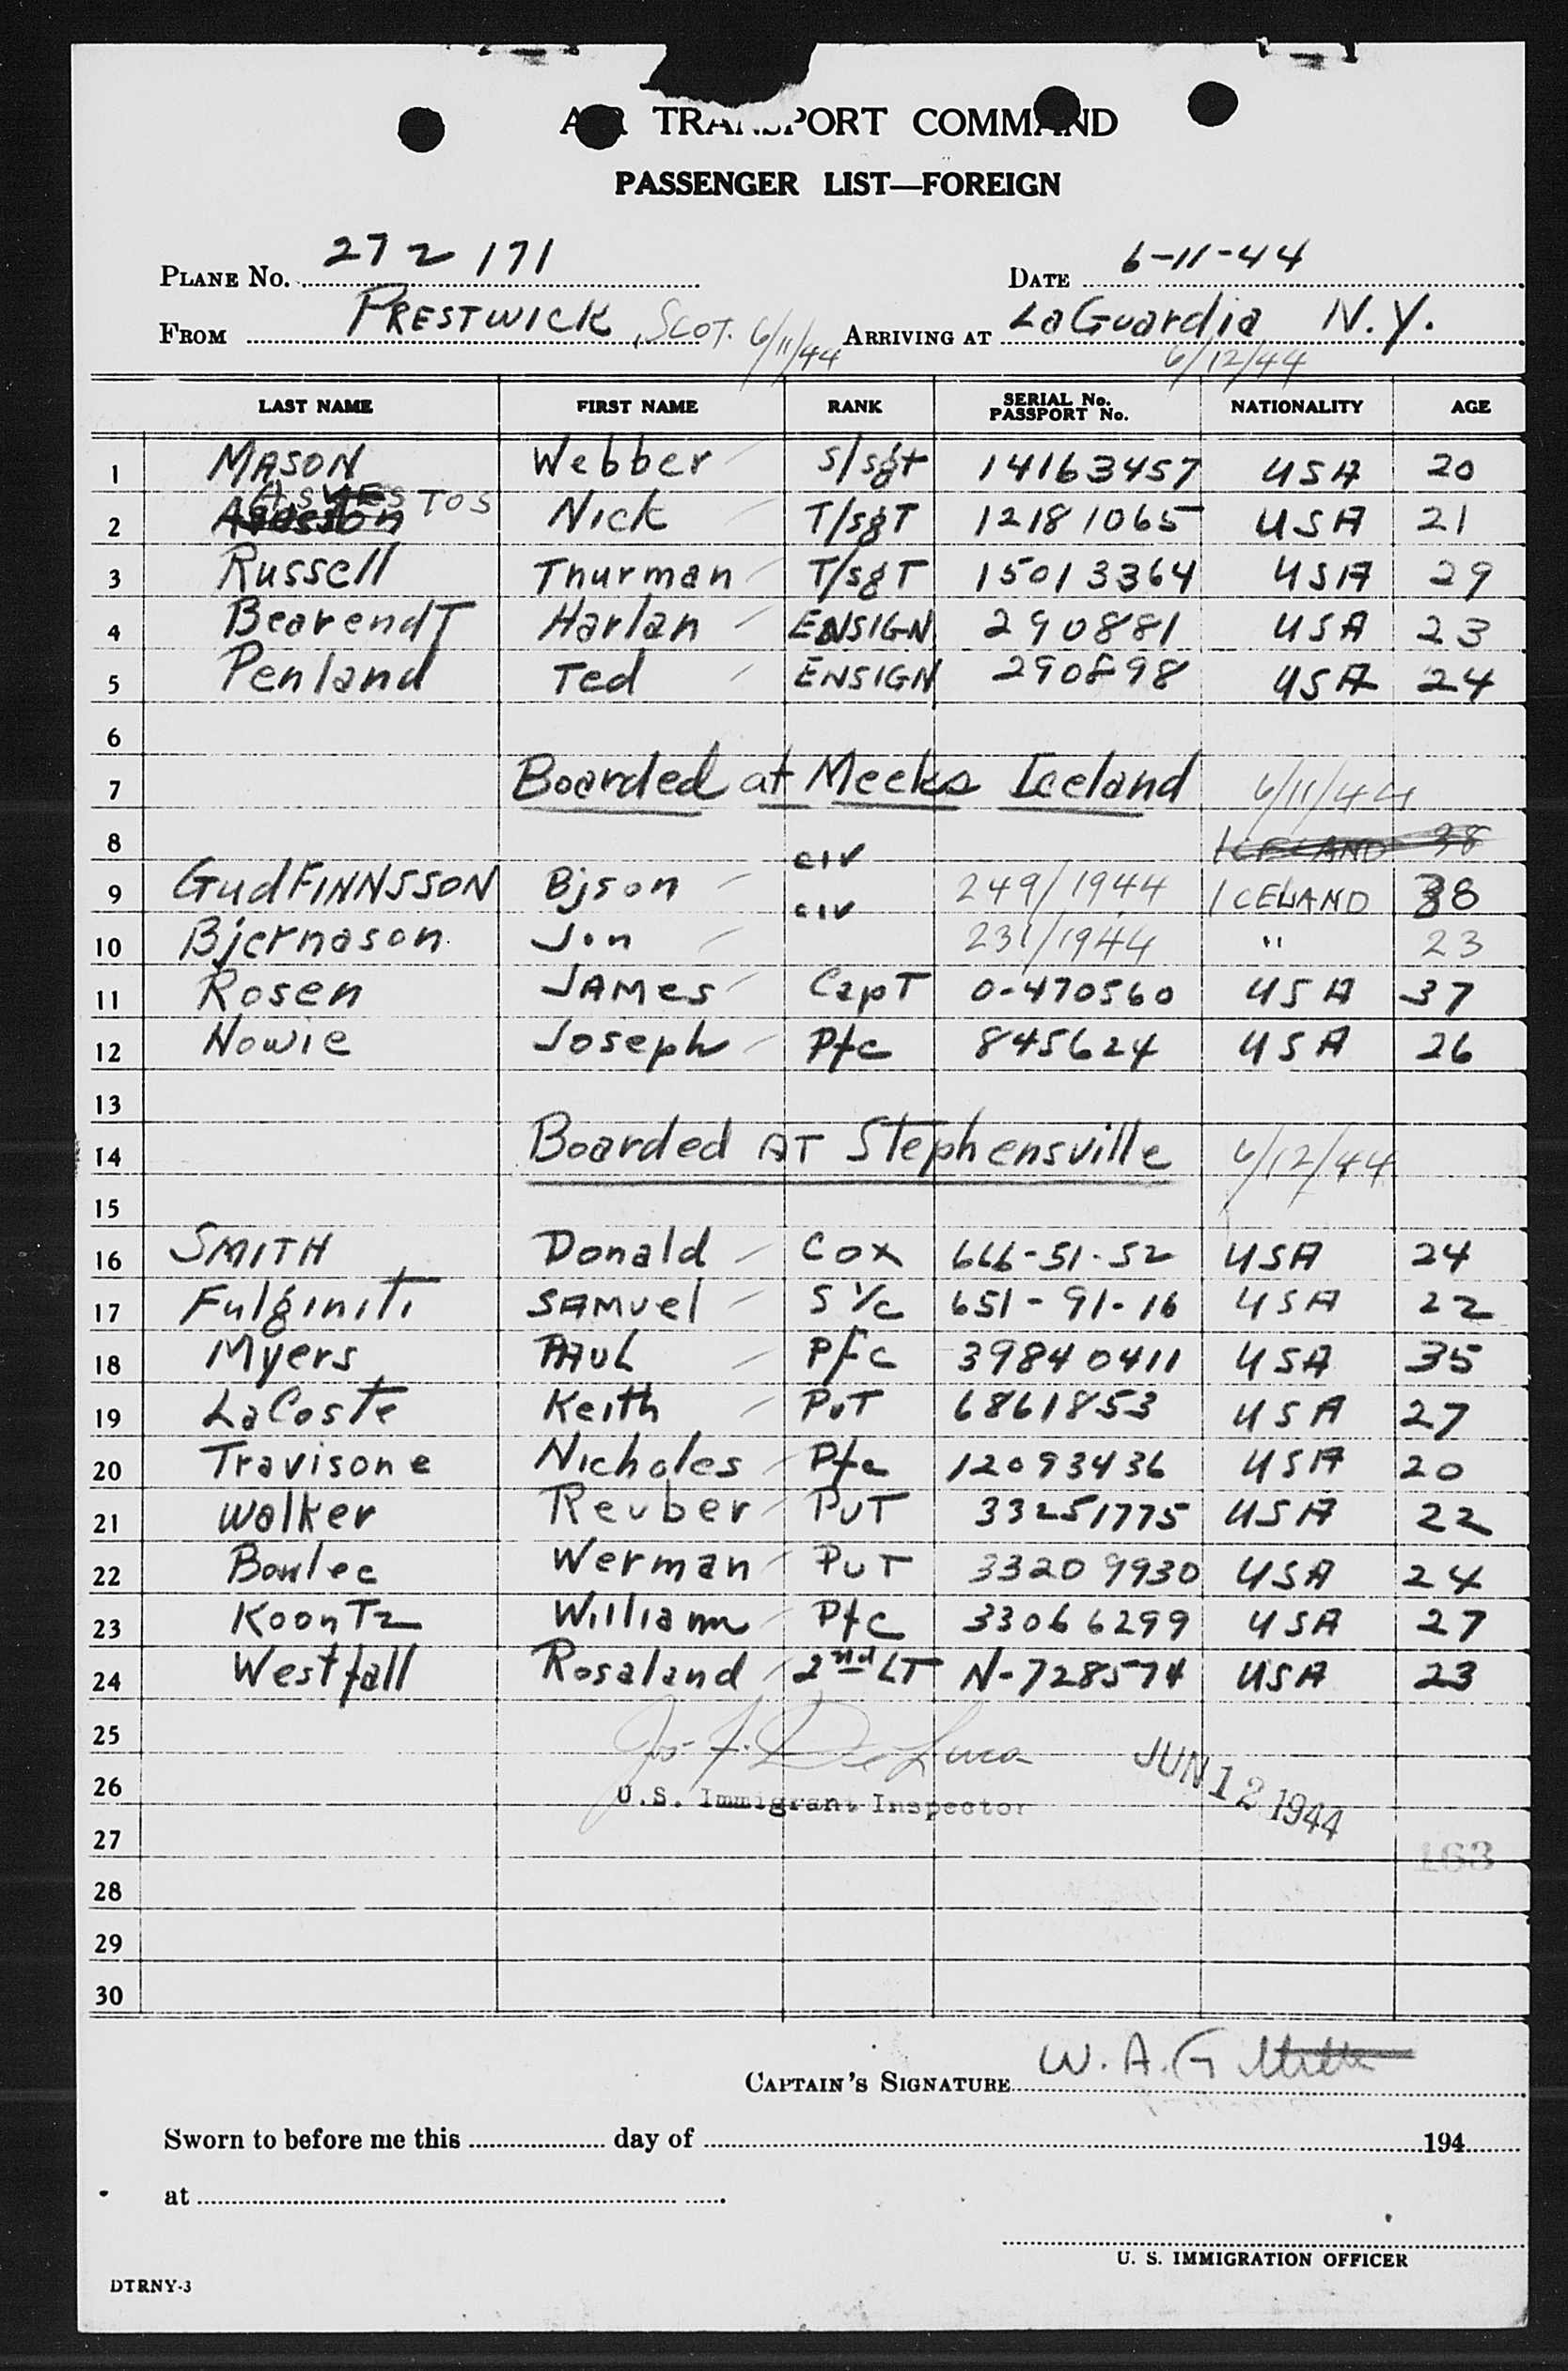 AIR TRANSPORT COMMAND
PASSENGER LIST—FOREIGN
PLANE No. 272171 DATE 6-11-44
FROM PRESTWICK, SCOT. 6/11/44 ARRIVING AT LaGuardia N.Y.
6/12/44
LAST NAME FIRST NAME RANK SERIAL No. PASSPORT No. NATIONALITY AGE
1 MASON Webber S/sgt 14163457 USA 20
2 Nick T/sgT 12181065 USA 21
3 Russell Thurman T/sgT 15013364 USA 29
4 BearendT Harlan ENSIGN 290881 USA 23
5 Penland Ted ENSIGN 290898 USA 24
6
7 Boarded at Meeks Iceland 6/11/44
8 civ ICELAND 38
9 GudFINNSSON Bjson civ 249/1944 ICELAND 38
10 Bjernason Jon 231/1944 " 23
11 Rosen JAMes CapT 0-470560 USA 37
12 Howie Joseph Pfc 845624 USA 26
13
14 Boarded AT Stephensville 6/12/44
15
16 SMITH Donald Cox 666-51-52 USA 24
17 Fulginiti SAMuel S 1/c 651-91-16 USA 22
18 Myers PAUL Pfc 39840411 USA 35
19 LaCoste Keith PvT 6861853 USA 27
20 Travisone Nicholes Pfc 12093436 USA 20
21 Walker Reuber PvT 33251775 USA 22
22 Bowlec Werman PvT 33209930 USA 24
23 KoonTz William Pfc 33066299 USA 27
24 Westfall Rosaland 2nd LT N-728574 USA 23
25 Jos. F. De Luca
26 U.S. Immigrant Inspector JUN 12 1944
27 163
28
29
30
CAPTAIN'S SIGNATURE W. A. G
Sworn to before me this day of 194
at
U. S. IMMIGRATION OFFICER
DTRNY-3